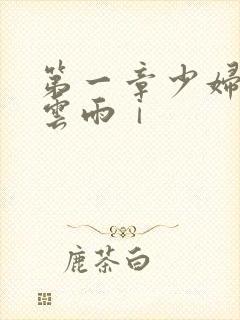 第一章少婦
雲雨｜
鹿茶白